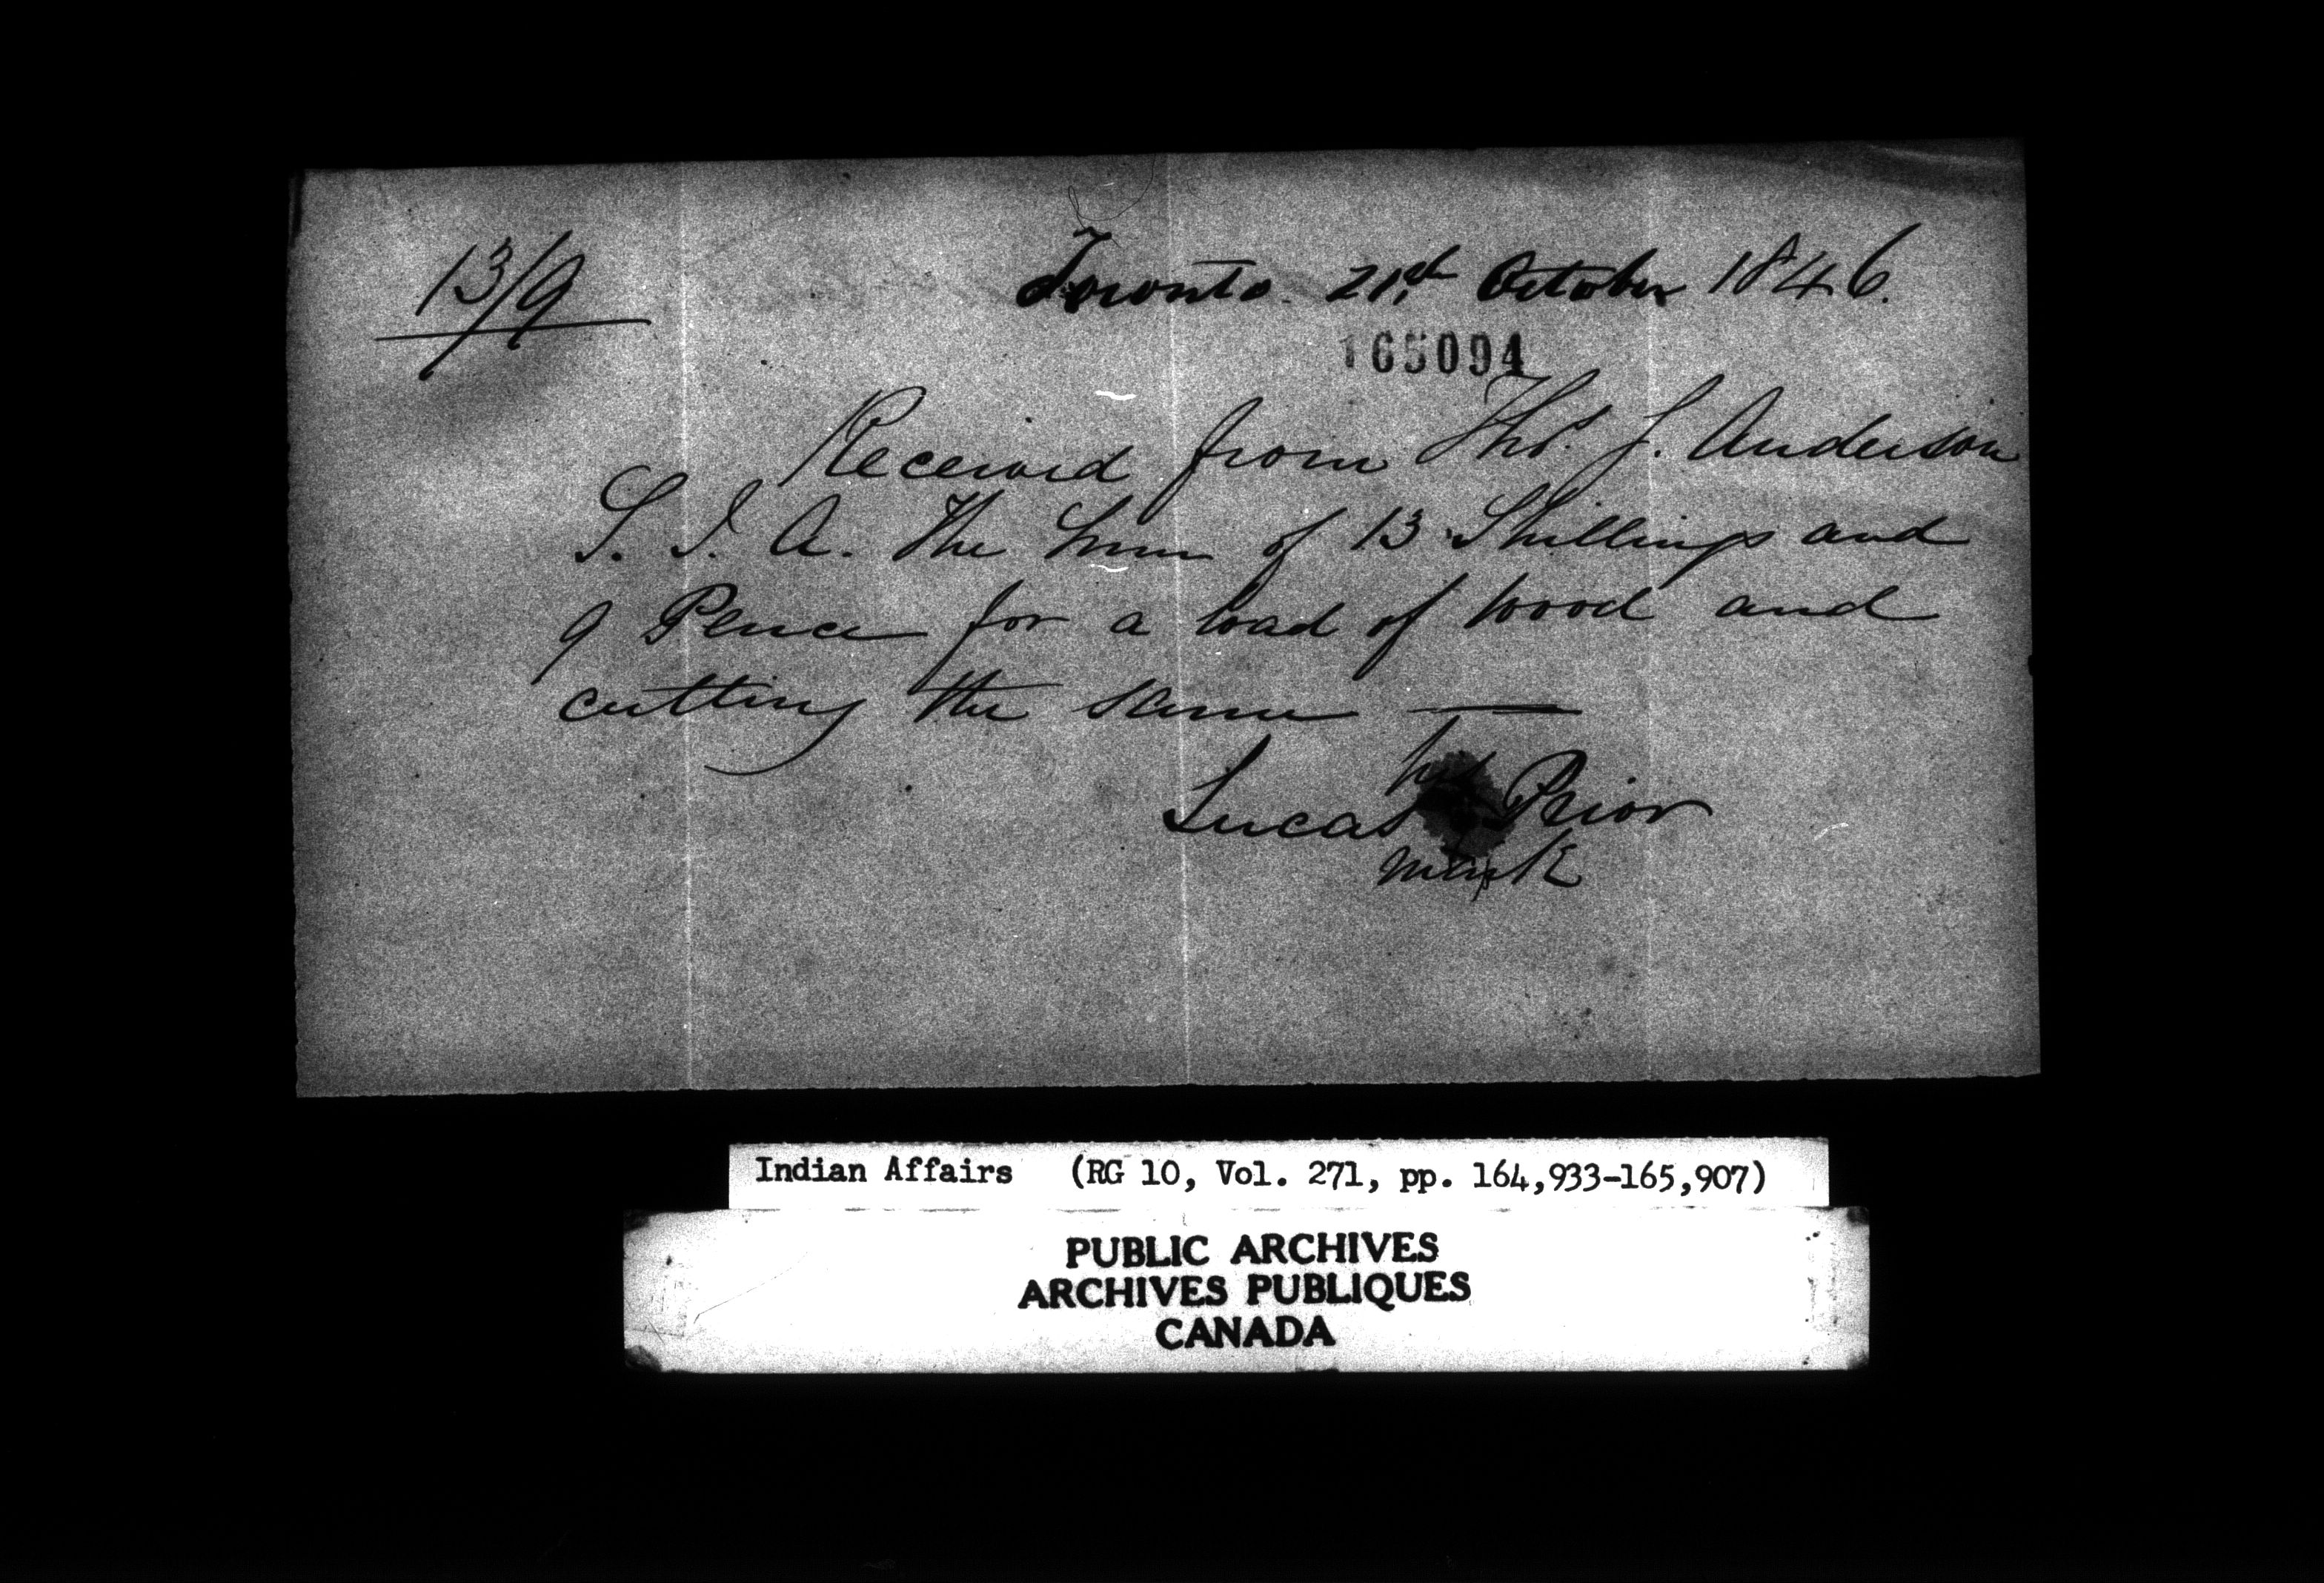 13/9
Toronto 21st October 1846.
165094
Received from Thos. G. Anderson
S. I. A. the Sum of 13 Shillings and
9 Pence for a load of wood and
cutting the same —
his
Lucas X Prior
mark
Indian Affairs (RG 10, Vol. 271, pp. 164,933-165,907)
PUBLIC ARCHIVES
ARCHIVES PUBLIQUES
CANADA